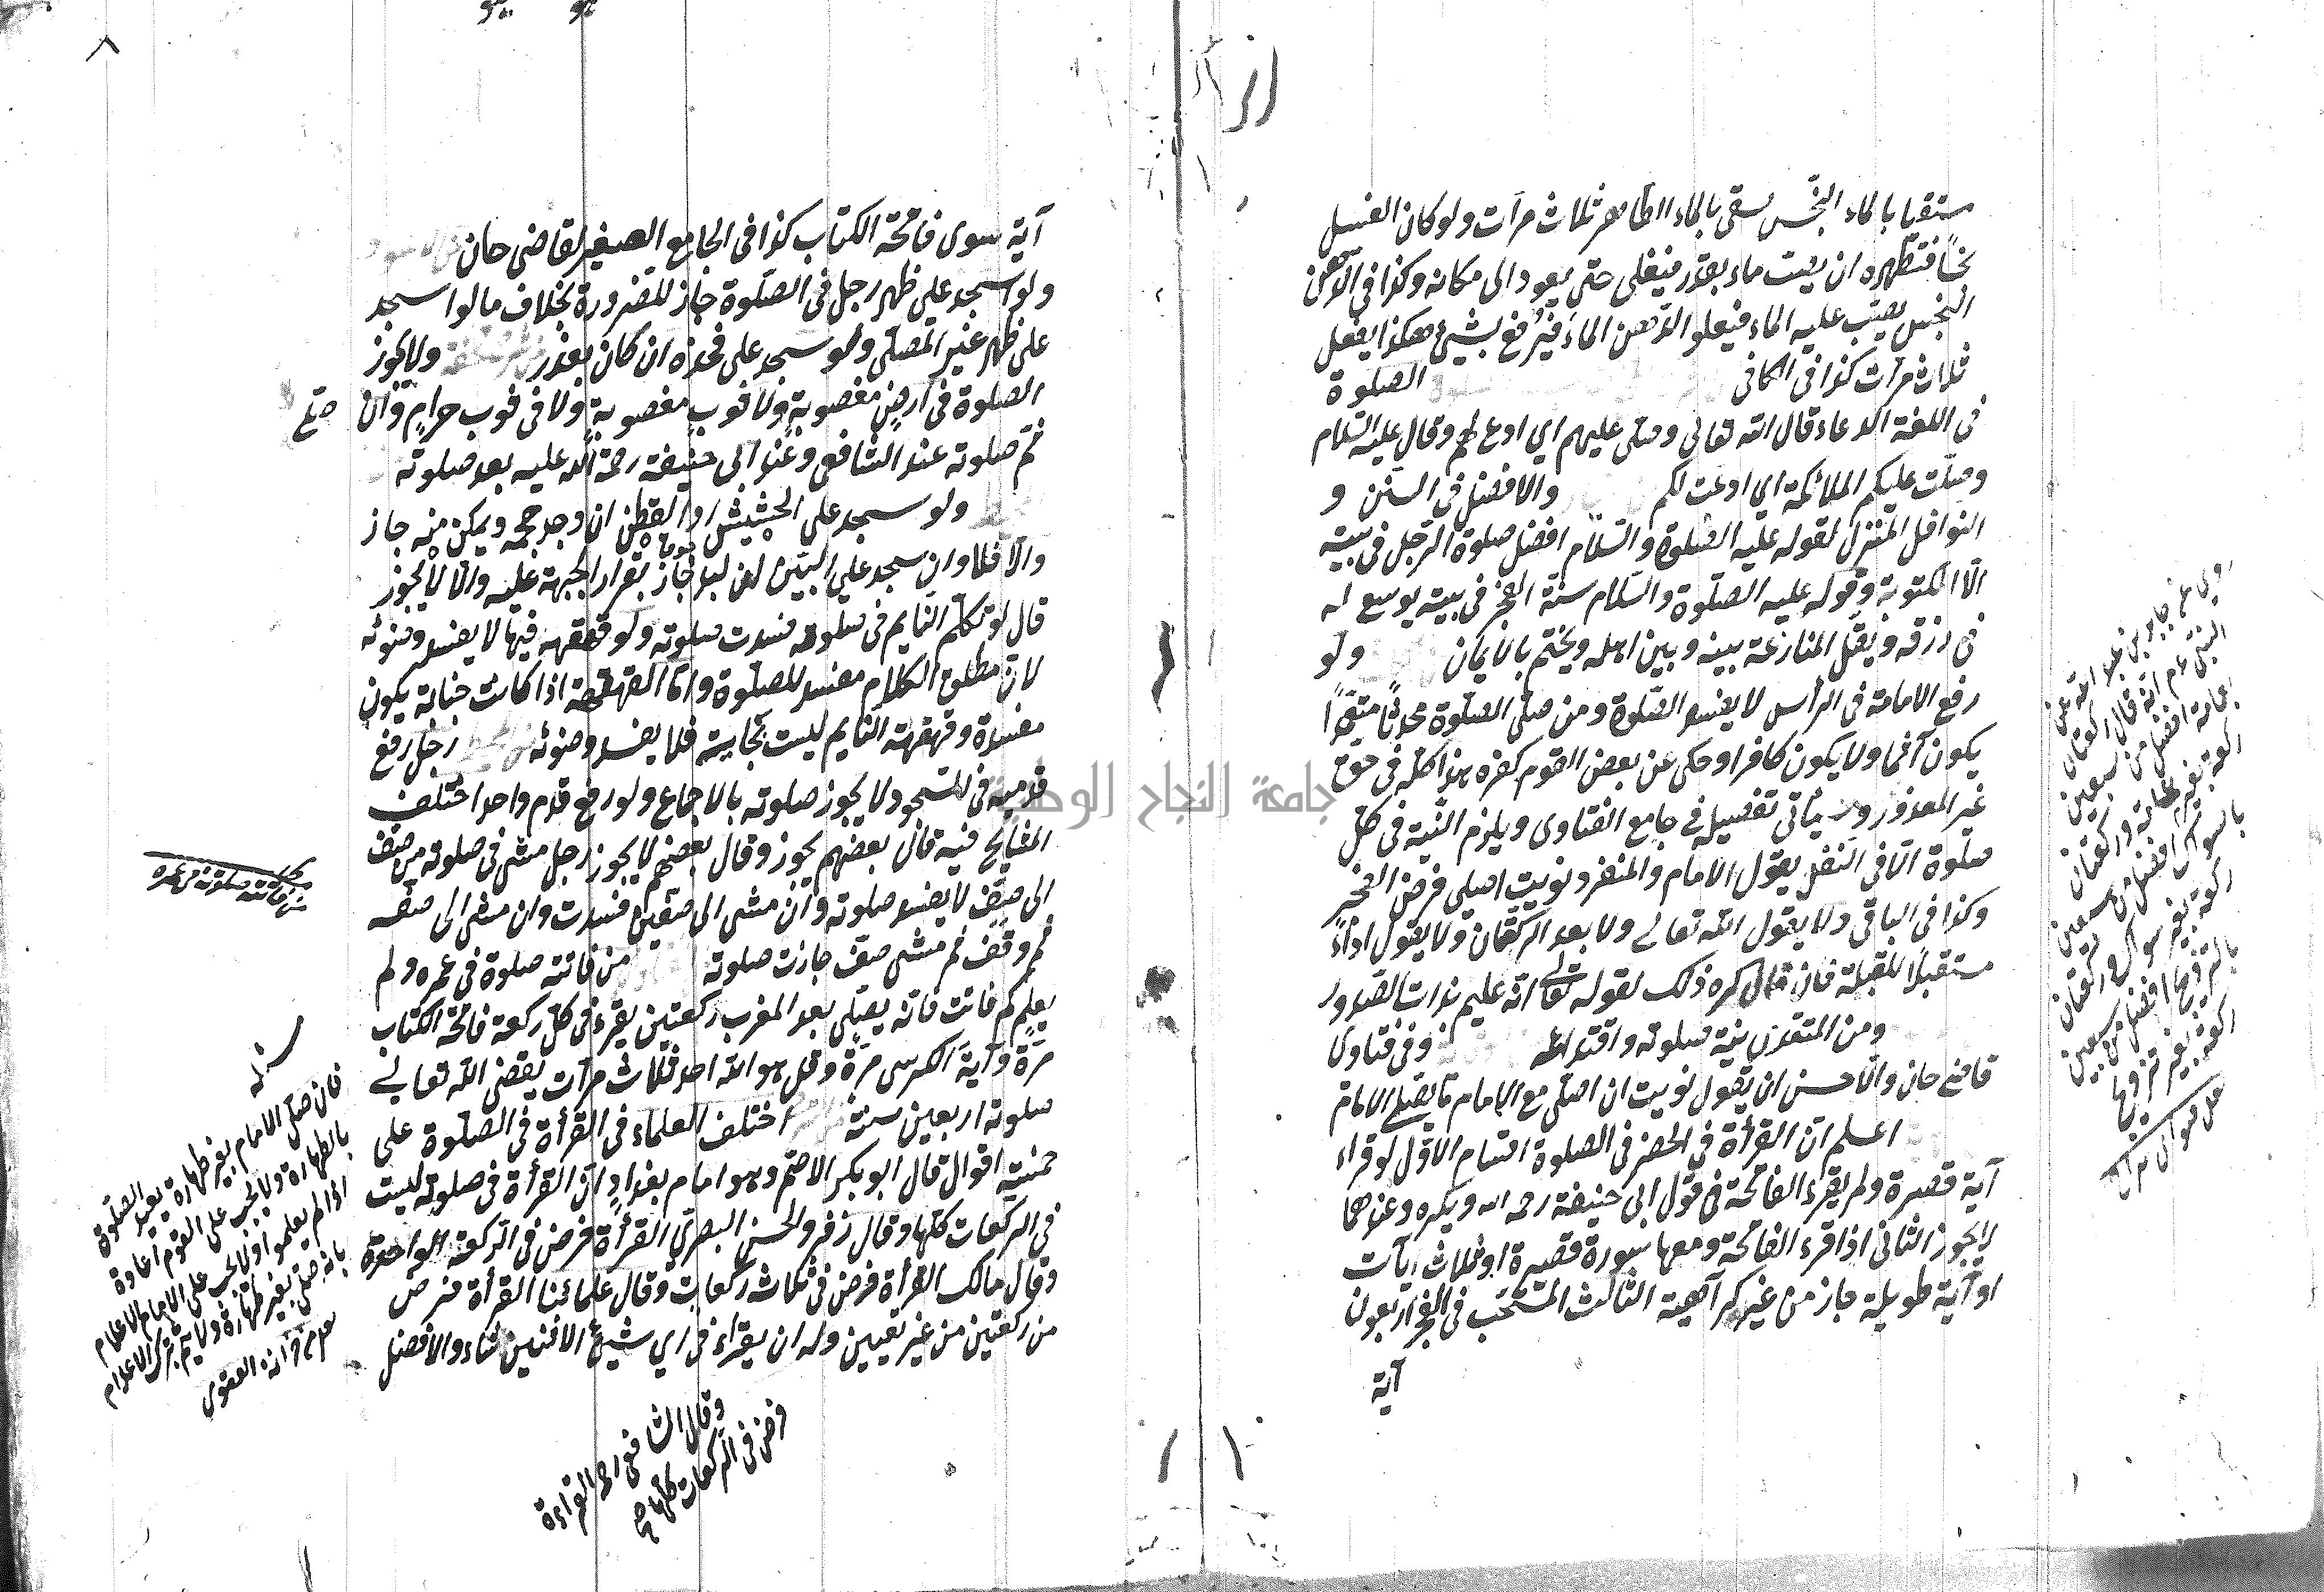 مستقيا بالماء النجس يسقى بالماء الطاهر ثلاث مرات ولو كان العسل
نجسًا فتطهره ان يصب ماء بقدر فيغلى حتى يعود الى مكانه وكذا في الدهن
النجس يصب عليه الماء فيعلو الدهن الماء فيرفع بشيئ هكذا يفعل
ثلاث مرات كذا في الكافي الصلوة
في اللغة الدعاء قال الله تعالى وصلى عليهم اي ادع لهم وقال عليه السلام
وصلت عليكم الملائكة اي ادعت لكم والافضل في السنن و
النوافل المنزل لقوله عليه الصلوة والسلام افضل صلوة الرجل في بيته
الا المكتوبة وقوله عليه الصلوة والسلام سنة الفجر في بيته يوسع له
في رزقه ويقل المنازعة بينه وبين اهله ويختم بالايمان ولو
رفع الامامة في الرأس لا يفسد الصلوة ومن صلى الصلوة محدثًا متعمدًا
يكون آثما ولا يكون كافرا وحكى عن بعض القوم كفره هذا كله في حق
غير المعذور وسيأتي تفصيله في جامع الفتاوى ويلزم النية في كل
صلوة الا في النفل يقول الامام والمنفرد نويت اصلى فرض الفجر
وكذا في الباقي ولا يقول الله تعالى ولا بعد الركعات ولا يقول اداءً
مستقبلا للقبلة فان قال كره ذلك لقوله تعالى انه عليم بذات الصدور
ومن المقتدى بنية صلوته واقتدائه وفي فتاوى
قاضى خان والاحسن ان يقول نويت ان اصلى مع الامام ما يصلى الامام
اعلم ان القرأة في الحضر في الصلوة اقسام الاول لو قراء
آية قصيرة ولم يقرء الفاتحة في قول ابى حنيفة رحمه الله ويكره وعندهما
لا يجوز الثاني اذا قرء الفاتحة ومعها سورة قصيرة او ثلاث ايات
او آية طويلة جاز من غير كراهية الثالث المستحب في الفجر اربعون
آية
روى عن جابر بن عبد الله عن
النبى عم انه قال ركعتان
بعمامة افضل من سبعين
ركعة بغير عمامة وركعتان
بالسواك افضل من سبعين
ركعة بغير سواك وركعتان
بالتزوج افضل من سبعين
ركعة بغير تزوج
آية سوى فاتحة الكتاب كذا في الجامع الصغير لقاضى خان
ولو سجد على ظهر رجل في الصلوة جاز للضرورة بخلاف ما لو اسجد
على ظهر غير المصلى ولو سجد على فخذه ان كان بعذر ولا يجوز
الصلوة في ارض مغصوبة ولا ثوب مغصوبة ولا في ثوب حرام وان صلى
ثم صلوته عند الشافعى وعند ابى حنيفة رحمة الله عليه بعد صلوته
ولو سجد على الحشيش او القطن ان وجد حجمه ويمكن منه جاز
والا فلا وان سجد على التبن ان لبد جاز بقرار الجبهة عليه والا لا يجوز
قال لو تكلم النايم في صلوته فسدت صلوته ولو قهقهه فيها لا يفسد وضوئه
لان مطلق الكلام مفسد للصلوة واما القهقهة اذا كانت جناية يكون
مفسدة وقهقهة النايم ليست بجناية فلا يفسد وضوئه رجل رفع
قدميه في السجود لا يجوز صلوته بالاجماع ولو رفع قدم واحد اختلف
المشايخ فيه قال بعضهم يجوز وقال بعضهم لا يجوز رجل مشى في صلوته من صف
الى صف لا يفسد صلوته وان مشى الى صفين فسدت وان مشى الى صف
ثم وقف ثم مشى صف جازت صلوته من فاتته صلوة في عمره ولم
يعلم كم فاتت فانه يصلى بعد المغرب ركعتين يقرء في كل ركعة فاتحة الكتاب
مرة وآية الكرسى مرة وقل هو الله احد ثلاث مرات يقضى الله تعالى
صلوته اربعين سنة اختلف العلماء في القرأة في الصلوة على
خمسة اقوال قال ابو بكر الاصم وهو امام بغداد ان القرأة في صلوته ليست
في الركعات كلها وقال زفر والحسن البصري القرأة فرض في الركعة الواحدة
وقال مالك القرأة فرض في ثلاث ركعات وقال علمائنا القرأة فرض
من ركعتين من غير تعيين وله ان يقراء في اي شيئ الاثنين شاء والافضل
وقال الشافعى رحمه القراءة
فرض في الركعات كلها
من فاتته صلوته من عمره
مسئله
فان صلى الامام بغير طهارة يعيد الصلوة
بالطهارة ولا يجب على القوم اعادة
اذا لم يعلموا ولا يجب على الامام الاعلام
بانه صلى بغير طهارة ولا يأثم بترك الاعلام
جامعة النجاح الوطنية